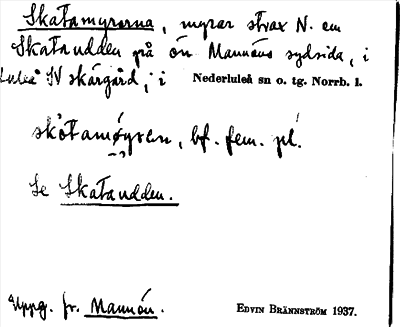 Skatamyrorna, myrar strax N. om
Skataudden på ön Mannöns sydsida, i
Luleå SV skärgård, i Nederluleå sn o. tg. Norrb. l.
skòtamøyren, bf. fem. pl.
Se Skataudden.
Uppg. fr. Mannön. EDVIN BRÄNNSTRÖM 1937.